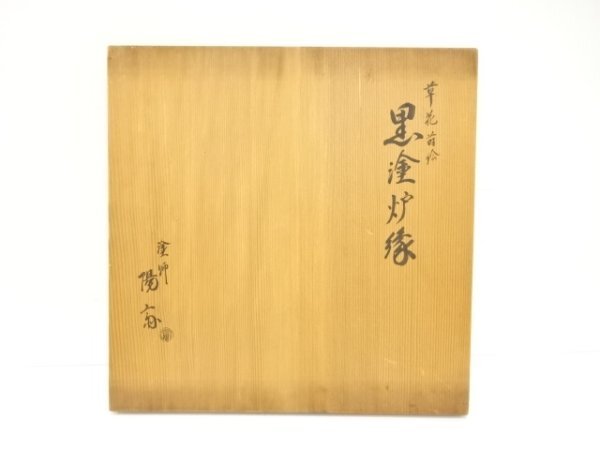 草花蒔絵
黒塗炉縁
塗師
陽斎